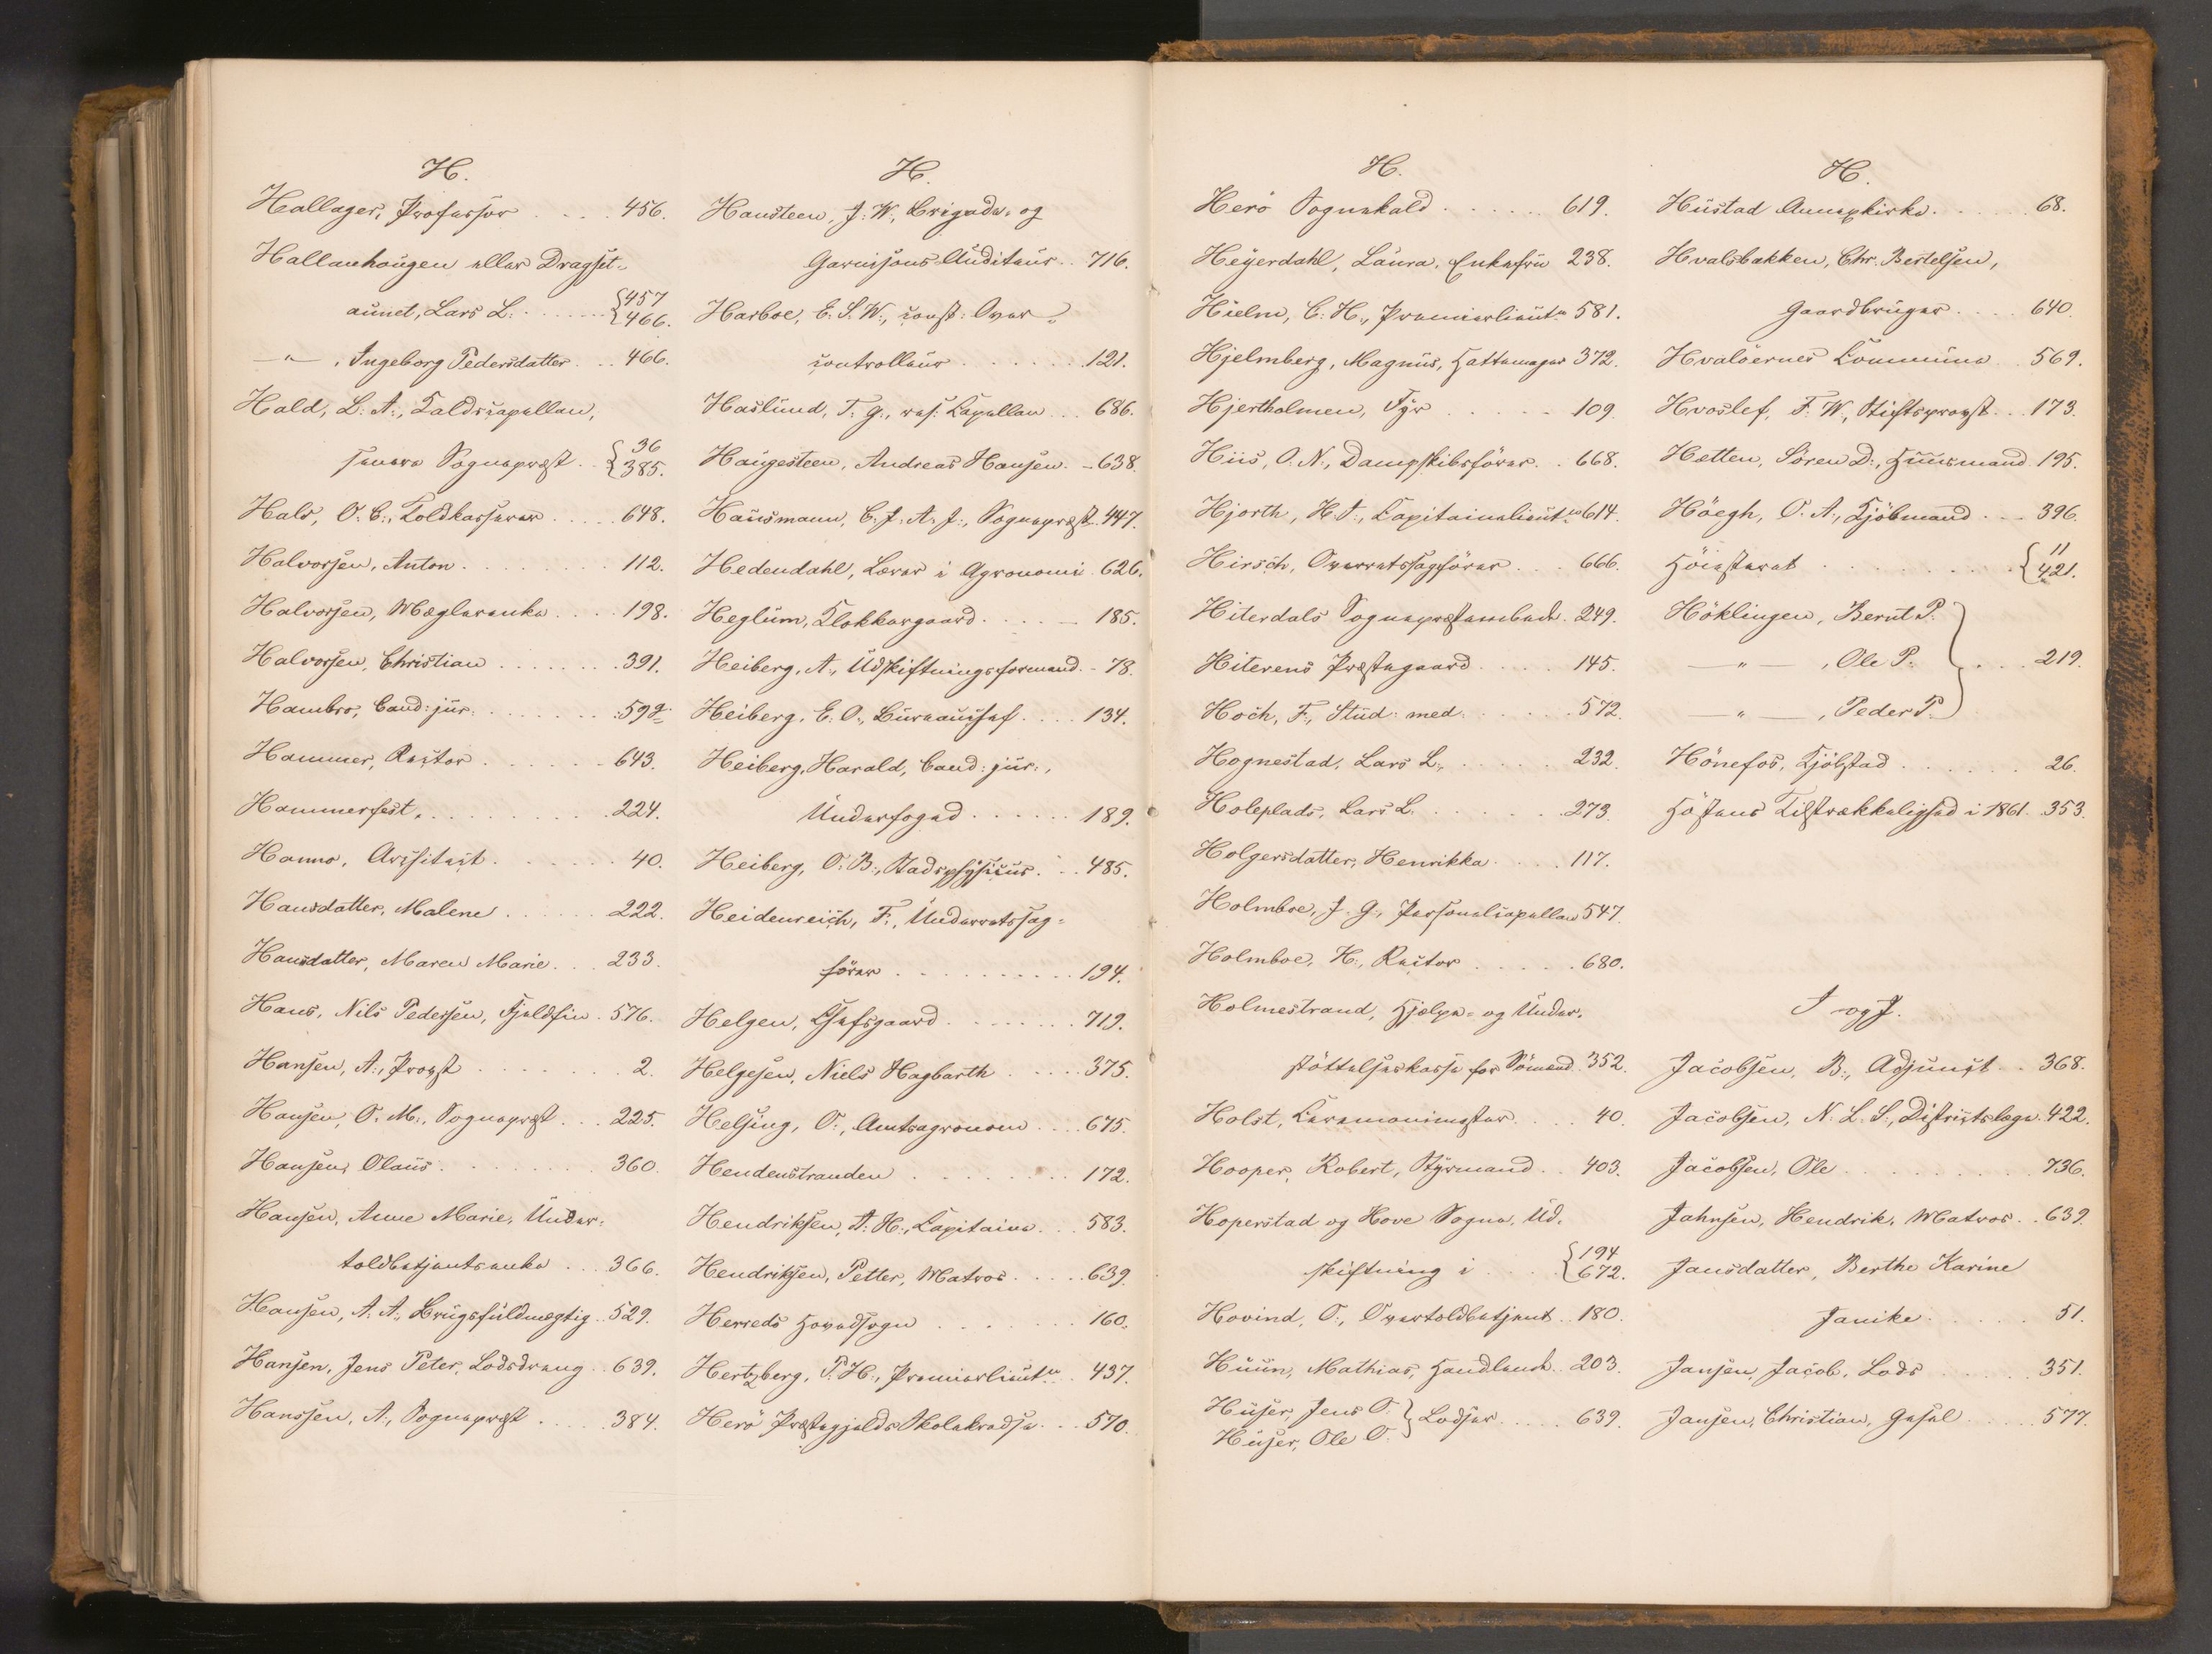 H.
Hallager, Professor . . . . 456.
Hallanhaugen eller Dragsit-
aunet, Lars L. . . . . . { 457
466.
—"—, Ingeborg Pedersdatter . . . 466.
Hald, L. A., Feldtcapellan,
senere Sognepræst . . { 36
385.
Hals, O. C., Toldkasserer . . . . 648.
Halvorsen, Anton . . . . . . . . 112.
Halvorsen, Mæglerenke . . . . 198.
Halvorsen, Christian . . . . . . . 391.
Hambro, Cand: jur. . . . . . . . 598.
Hammer, Rector . . . . . . 643.
Hammerfest . . . . . . . . . 224.
Hanno, Architect . . . . . . 40.
Hansdatter, Malene . . . . . 222.
Hansdatter, Maren Marie . . . 233.
Hans, Nils Pedersen, Fjeldfin . 576.
Hansen, A., Provst . . . . . . . 2.
Hansen, O. M., Sognepræst . . . 225.
Hansen, Olaus . . . . . . . . 360.
Hansen, Anne Marie, Under-
toldbetjentsenke . . . 366.
Hansen, A. A., Brugsfuldmægtig . . 529.
Hansen, Jens Peter, Lodsdreng . . 639.
Hanssen, A., Sognepræst . . . . 384.
H.
Hansteen, J. W., Brigade- og
Garnisons Auditeur . . 716.
Harboe, E. S. W., const: Over-
controlleur . . . . . . . 121.
Haslund, T. G., res. Capellan . . . 686.
Haugesteen, Andreas Hansen . — 638.
Hausmann, C. J. A. J., Sognepræst . 447.
Hedendahl, Lærer i Agronomi . 626.
Heglum, Klokkergaard . . . . — 185.
Heiberg, A., Udskiftningsformand . - 78.
Heiberg, E. O., Bureauchef . . . . 134.
Heiberg, Harald, Cand: jur.,
Underfoged . . . . . . 189.
Heiberg, O. B., Stadsphysicus . . . 485.
Heidenreich, F., Underretssag-
fører . . . . . . . . . . 194.
Helgen, Chefsgaard . . . . . . . . 719.
Helgesen, Niels Hagbarth . . . . . 375.
Helsing, O., Amtsagronom . . . . 675.
Hendenstranden . . . . . . . . . 172.
Hendriksen, A. H., Capitaine . . . 583.
Hendriksen, Petter, Matros . . . . . 639.
Herreds Hovedsogn . . . . . . . 160.
Hertzberg, P. H., Premierlieutn . . 437.
Herö Præstegjelds Skolekredse . . . 570.
H.
Herö Sognekald . . . . . . 619.
Heyerdahl, Laura, Enkefru 238.
Hielm, C. H., Premierlieutn 581.
Hjelmberg, Magnus, Hattemager 372.
Hjertholmen, Fyr . . . . . 109.
Hiis, O. N., Dampskibsförer . . 668.
Hjorth, H. A., Capitainelieutn 614.
Hirsch, Overretssagförer . . . 666.
Hiterdals Sognepræstembede . 249.
Hiterens Præstegaard . . . . . 145.
Hoch, F., Stud: med: . . . . . 572.
Hognestad, Lars L. . . . . . 232.
Holeplads, Lars L. . . . . . . . 273.
Holgersdatter, Henrikka . . . . 117.
Holmboe, J. G., Personelcapellan 547.
Holmboe, H., Rector . . . . . 680.
Holmestrand, Hjelpe- og Under-
støttelseskasse for Sömænd . 352.
Holst, Ceremonimester . . . . 40.
Hooper, Robert, Styrmand . . 403.
Hoperstad og Hove Sogne, Ud-
skiftning i . . . . { 194
672.
Hovind, O., Overtoldbetjent . . 180.
Huun, Mathias, Handlende . . 203.
Huser, Jens O. } Lodser . . . . 639.
Huser, Ole O.
H.
Hustad Annexkirke . . . . . 68.
Hvalsbakken, Chr. Bertelsen,
Gaardbruger . . . . 640.
Hvalöernes Commune . . 569.
Hvoslef, F. W., Stiftsprovst . . . 173.
Hetten, Sören D., Huusmand . 195.
Höegh, O. A., Kjöbmand . . . 396.
Höiesteret . . . . . . . . { 11
421.
Höklingen, Bernt P.
—"—, Ole P. } . . . 219.
—"—, Peder P.
Hönefos, Kjöbstad . . . . . . 26.
Høstens Tilstrækkelighed i 1861 . 353.
I og J.
Jacobsen, B., Adjunct . . 368.
Jacobsen, N. L. S., Districtslæge . 422.
Jacobsen, Ole . . . . . . . . 736.
Jahnsen, Hendrik, Matros . . 639.
Jansdatter, Berthe Karine
Janike . . . . . . 51.
Jansen, Jacob, Lods . . . . . 351.
Jansen, Christian, Gesel . . . . 577.